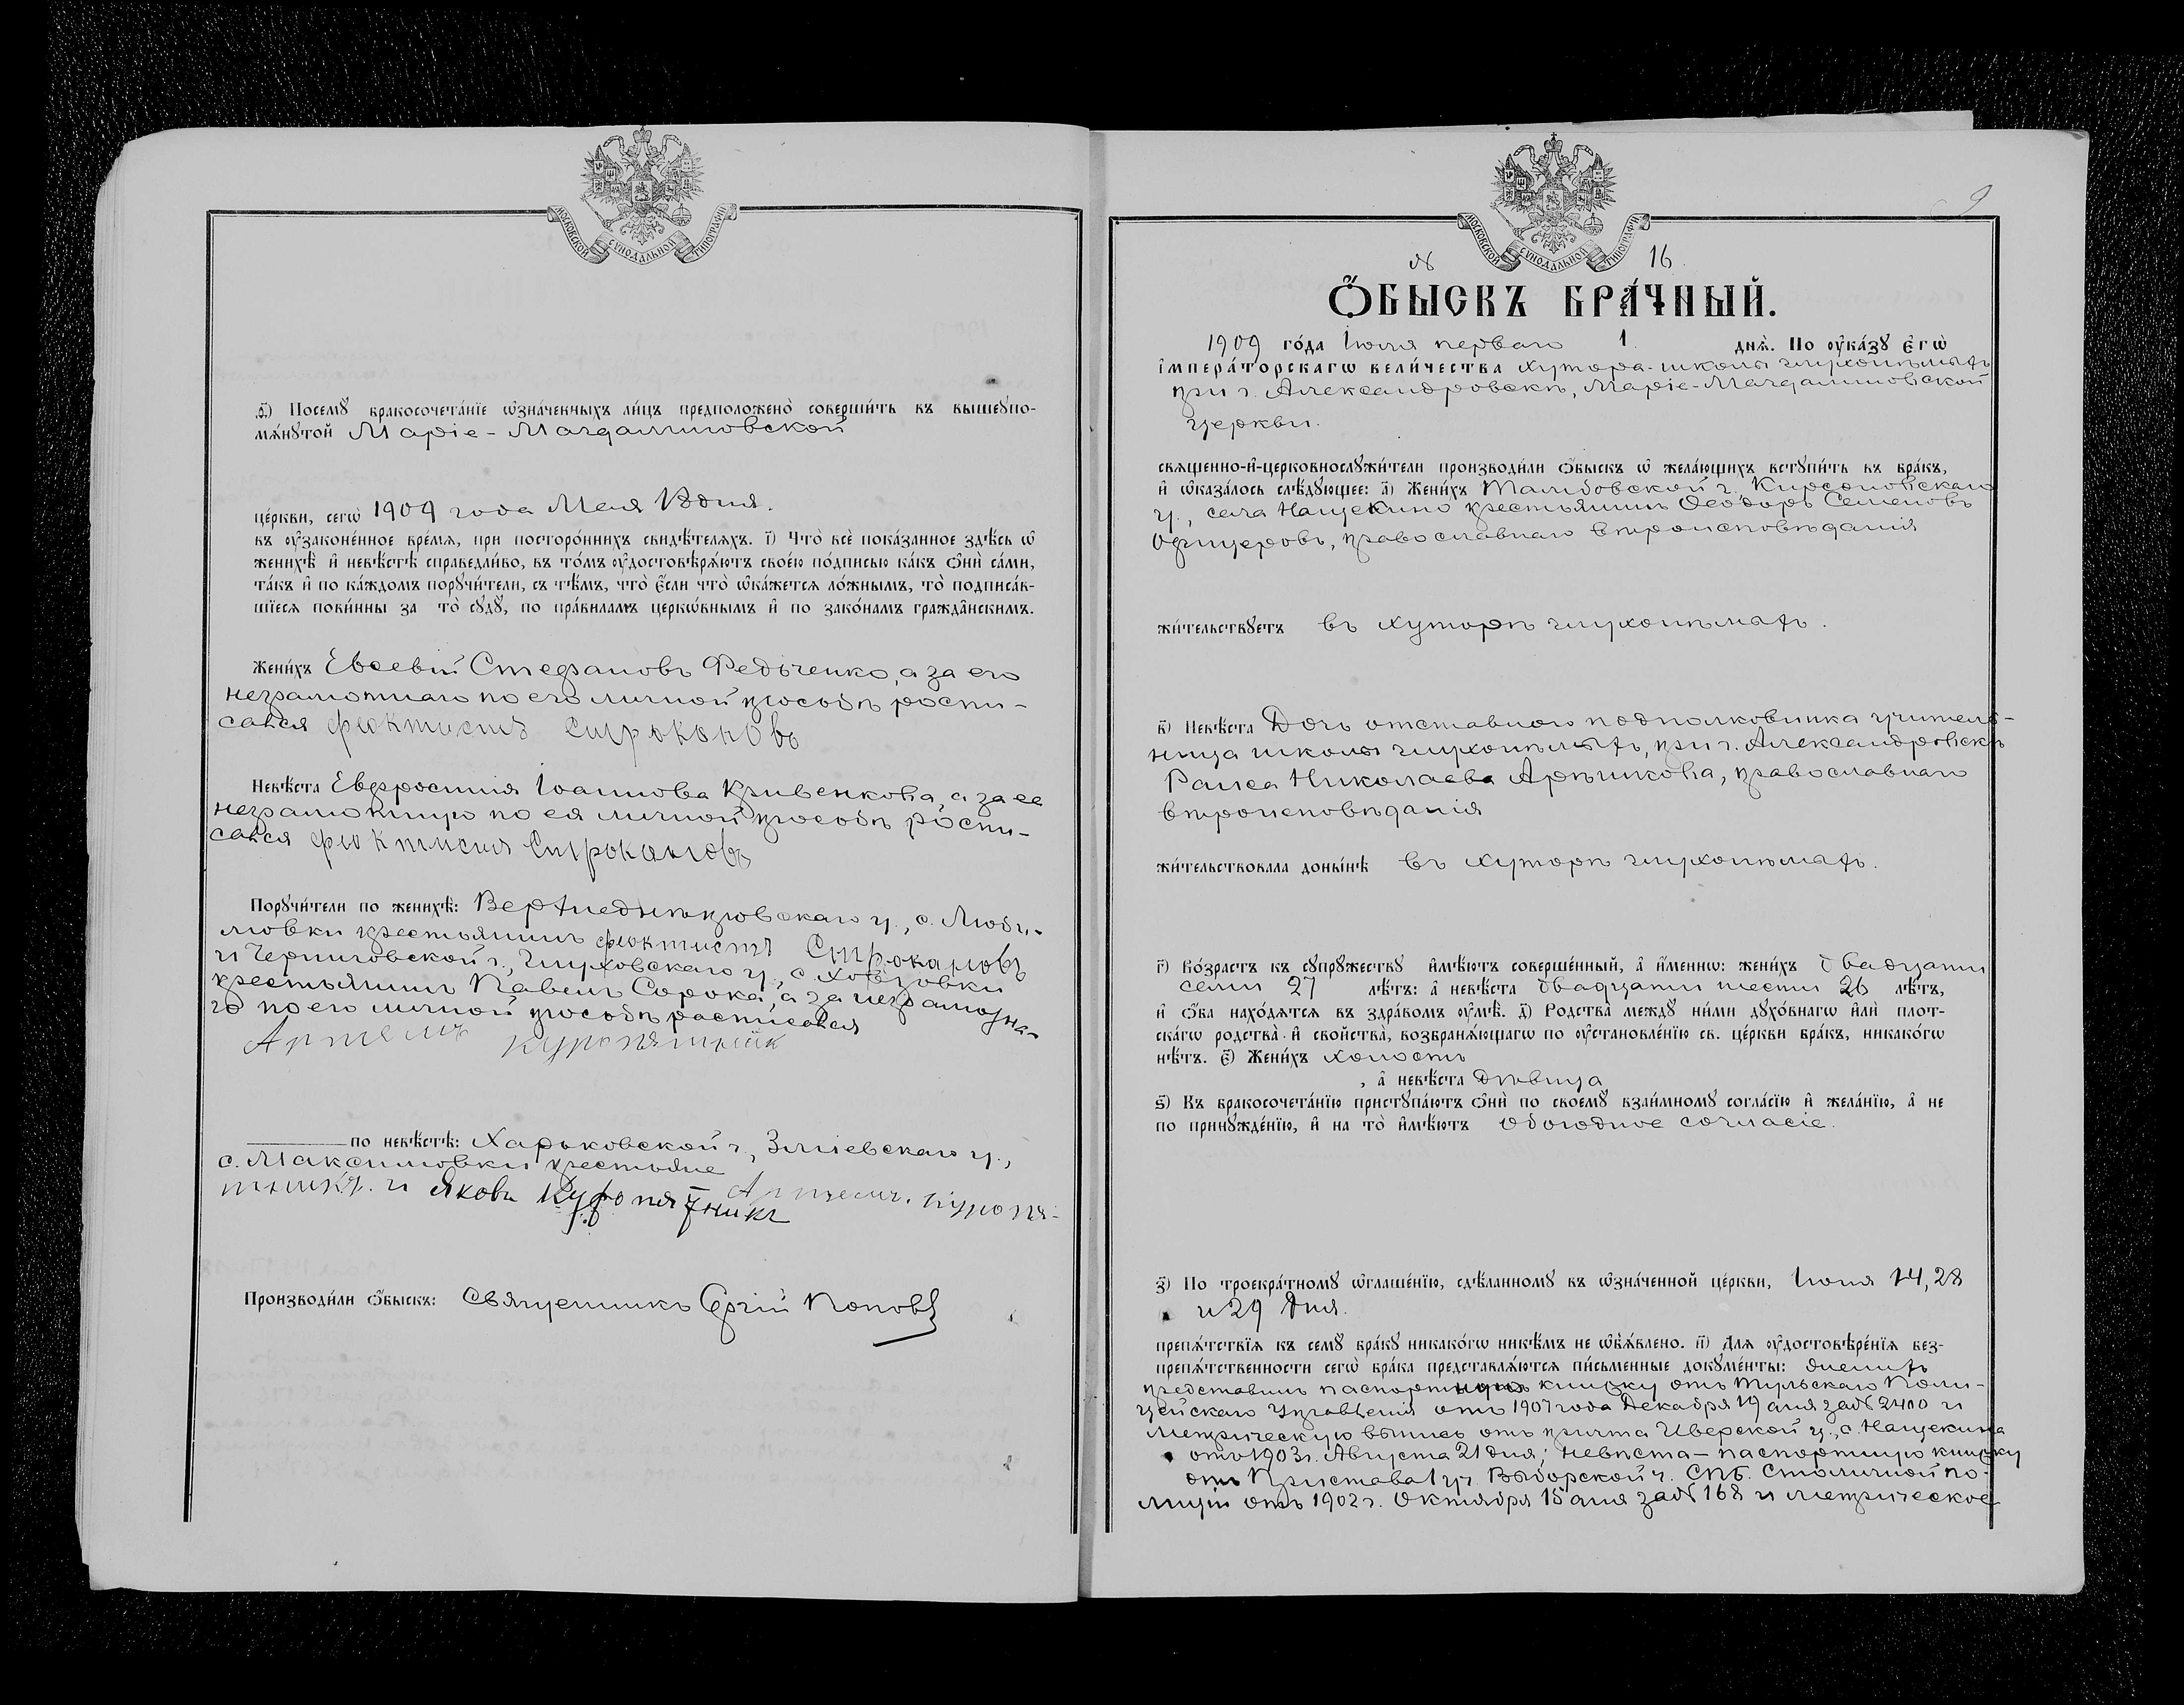 МОСКОВСКОЙ СѴНОДАЛЬНОЙ ТИПОГРАФІИ
д҃) Посемꙋ бракосочета́нїе ѡ҆зна́ченныхъ ли́цъ предположено̀ соверши́ть въ вышеꙋпо-
мѧ́нꙋтой Маріе-Магдалиновской
це́ркви, сегѡ̀ 1909 года Мая
въ ᲂу҆зако́ненное вре́мѧ, при посторо́ннихъ свидѣ́телѧхъ. і҃) Что̀ всѐ пока́занное здѣ́сь ѡ҆
женихѣ̀ и҆ невѣ́стѣ справедли́во, въ то́мъ ᲂу҆достовѣрѧ́ютъ свое́ю по́дписью ка́къ ѻ҆нѝ са́ми,
та́къ и҆ по ка́ждомъ порꙋчи́тели, съ тѣ́мъ, что̀ є҆́сли что̀ ѡ҆ка́жетсѧ ло́жнымъ, то̀ подписа́в-
шїесѧ пови́нны за то̀ сꙋдꙋ̀, по пра́виламъ церкѡ́внымъ и҆ по зако́намъ гражда̑нскимъ.
Жени́хъ Евсевій Стефановъ Федьченко, а за его
неграмотнаго по его личной просьбѣ роспи-
сался феоктистъ Строкановъ
Невѣ́ста Евфросинія Іоаннова Кривенкова, а за ее
неграмотную по ея личной просьбѣ роспи-
сался Строкановъ
Порꙋчи́тели по женихѣ̀: Верхнеднѣпровскаго у., с. Люби-
мовки крестьянинъ феоктистъ Строкановъ
и Черниговской г., Глуховскаго у., с.
крестьянинъ Павелъ Сорока, а за неграмотна-
го по его личной просьбѣ расписался
Артемъ Куропятникъ
по невѣ́стѣ: Харьковской г., Зміевскаго у.,
с. Максимовки крестьяне
Артемъ Куропя-
тникъ и Яковъ Куропятникъ
Производи́ли ѻ҆́быскъ: Священникъ Сергій Поповъ
9
МОСКОВСКОЙ СѴНОДАЛЬНОЙ ТИПОГРАФІИ
№ 16
Ѻ҆́БЫСКЪ БРА́ЧНЫЙ.
1909 го́да Іюля перваго 1 днѧ̀. По ᲂу҆ка́зꙋ є҆гѡ̀
і҆мпера́торскагѡ вели́чества хутора-школы глухонѣмыхъ
при г. Александровскѣ, Маріе-Магдалиновской
церкви.
свѧще́нно-и҆-церковнослꙋжи́тели производи́ли ѻ҆́быскъ ѡ҆ жела́ющихъ встꙋпи́ть въ бра́къ,
и҆ ѡ҆каза́лось слѣ́дꙋющее: а҃) Жени́хъ Тамбовской г., Кирсановскаго
у., села Нащекино крестьянинъ Ѳеодоръ Семеновъ
Офицеровъ, православнаго вѣроисповѣданія
жи́тельствꙋетъ въ хуторѣ глухонѣмыхъ.
в҃) Невѣ́ста Дочь отставного подполковника учитель-
ница школы глухонѣмыхъ, при г. Александровскѣ
Раиса Николаева православнаго
вѣроисповѣданія
жи́тельствовала доны́нѣ въ хуторѣ глухонѣмыхъ.
г҃) Во́зрастъ къ сꙋпрꙋ́жествꙋ и҆мѣ́ютъ соверше́нный, а҆ и҆́менно: жени́хъ двадцати
семи 27 лѣ́тъ: а҆ невѣ́ста двадцати шести 26 лѣ́тъ,
и҆ ѻ҆́ба нахо́дѧтсѧ въ здра́вомъ ᲂу҆мѣ̀. д҃) Родства̀ междꙋ ни́ми дꙋхо́внагѡ и҆лѝ плот-
ска́гѡ родства̀ и҆ сво́йства̀, возбранѧ́ющагѡ по ᲂу҆становле́нїю св. це́ркви бра́къ, никако́гѡ
нѣ́тъ. є҃) Жени́хъ холостъ
, а҆ невѣ́ста дѣвица
ѕ҃) Къ бракосочета́нїю пристꙋпа́ютъ ѻ҆нѝ по своемꙋ̀ взаи́мномꙋ согла́сїю и҆ жела́нїю, а҆ не
по принꙋжде́нїю, и҆ на то̀ и҆мѣ́ютъ обоюдное согласіе.
з҃) По троекра́тномꙋ ѡ҆глаше́нїю, сдѣ́ланномꙋ въ ѡ҆зна́ченной це́ркви, Іюня 14, 28
и 29 дня.
препѧ́тствїѧ къ семꙋ̀ бра́кꙋ никако́гѡ никѣ́мъ не ѡ҆б̾ѧ́влено. и҃) Для ᲂу҆достовѣре́нїѧ без-
препѧ́тственности сегѡ̀ бра́ка представлѧ́ютсѧ пи́сьменные докꙋме́нты: женихъ
представилъ паспортную книжку отъ Тульскаго Поли-
цейскаго Управленія отъ 1907 года Декабря 19 дня за № 2400 и
метрическую выпись отъ причта Иверской ц., с. Нащекина
отъ 1903 г. Августа 21 дня; невѣста - паспортную книжку
отъ Пристава 1 уч. Выборской ч. СПБ. Столичной по-
лиціи отъ 1902 г. Октября 15 дня за № 168 и метрическое